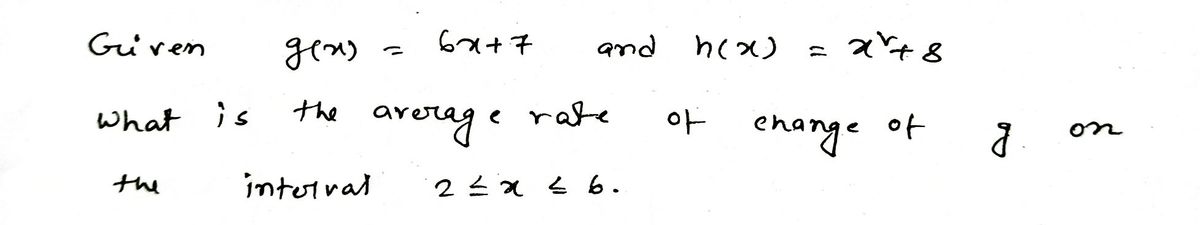 Given g(x) = 6x+7 and h(x) = x²+8
What is the average rate of change of g on
the interval 2 ≤ x ≤ 6.